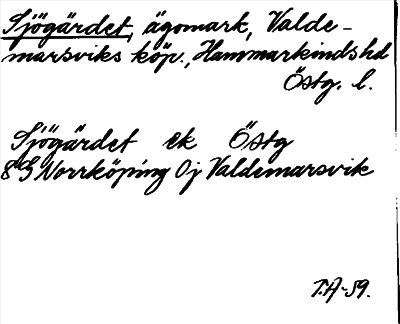 Sjögärdet, ägomark, Valde-
marsviks köp., Hammarkinds hd
Östg. l.
Sjögärdet ek Östg
8 G Norrköping 0j Valdemarsvik
T.A-59.